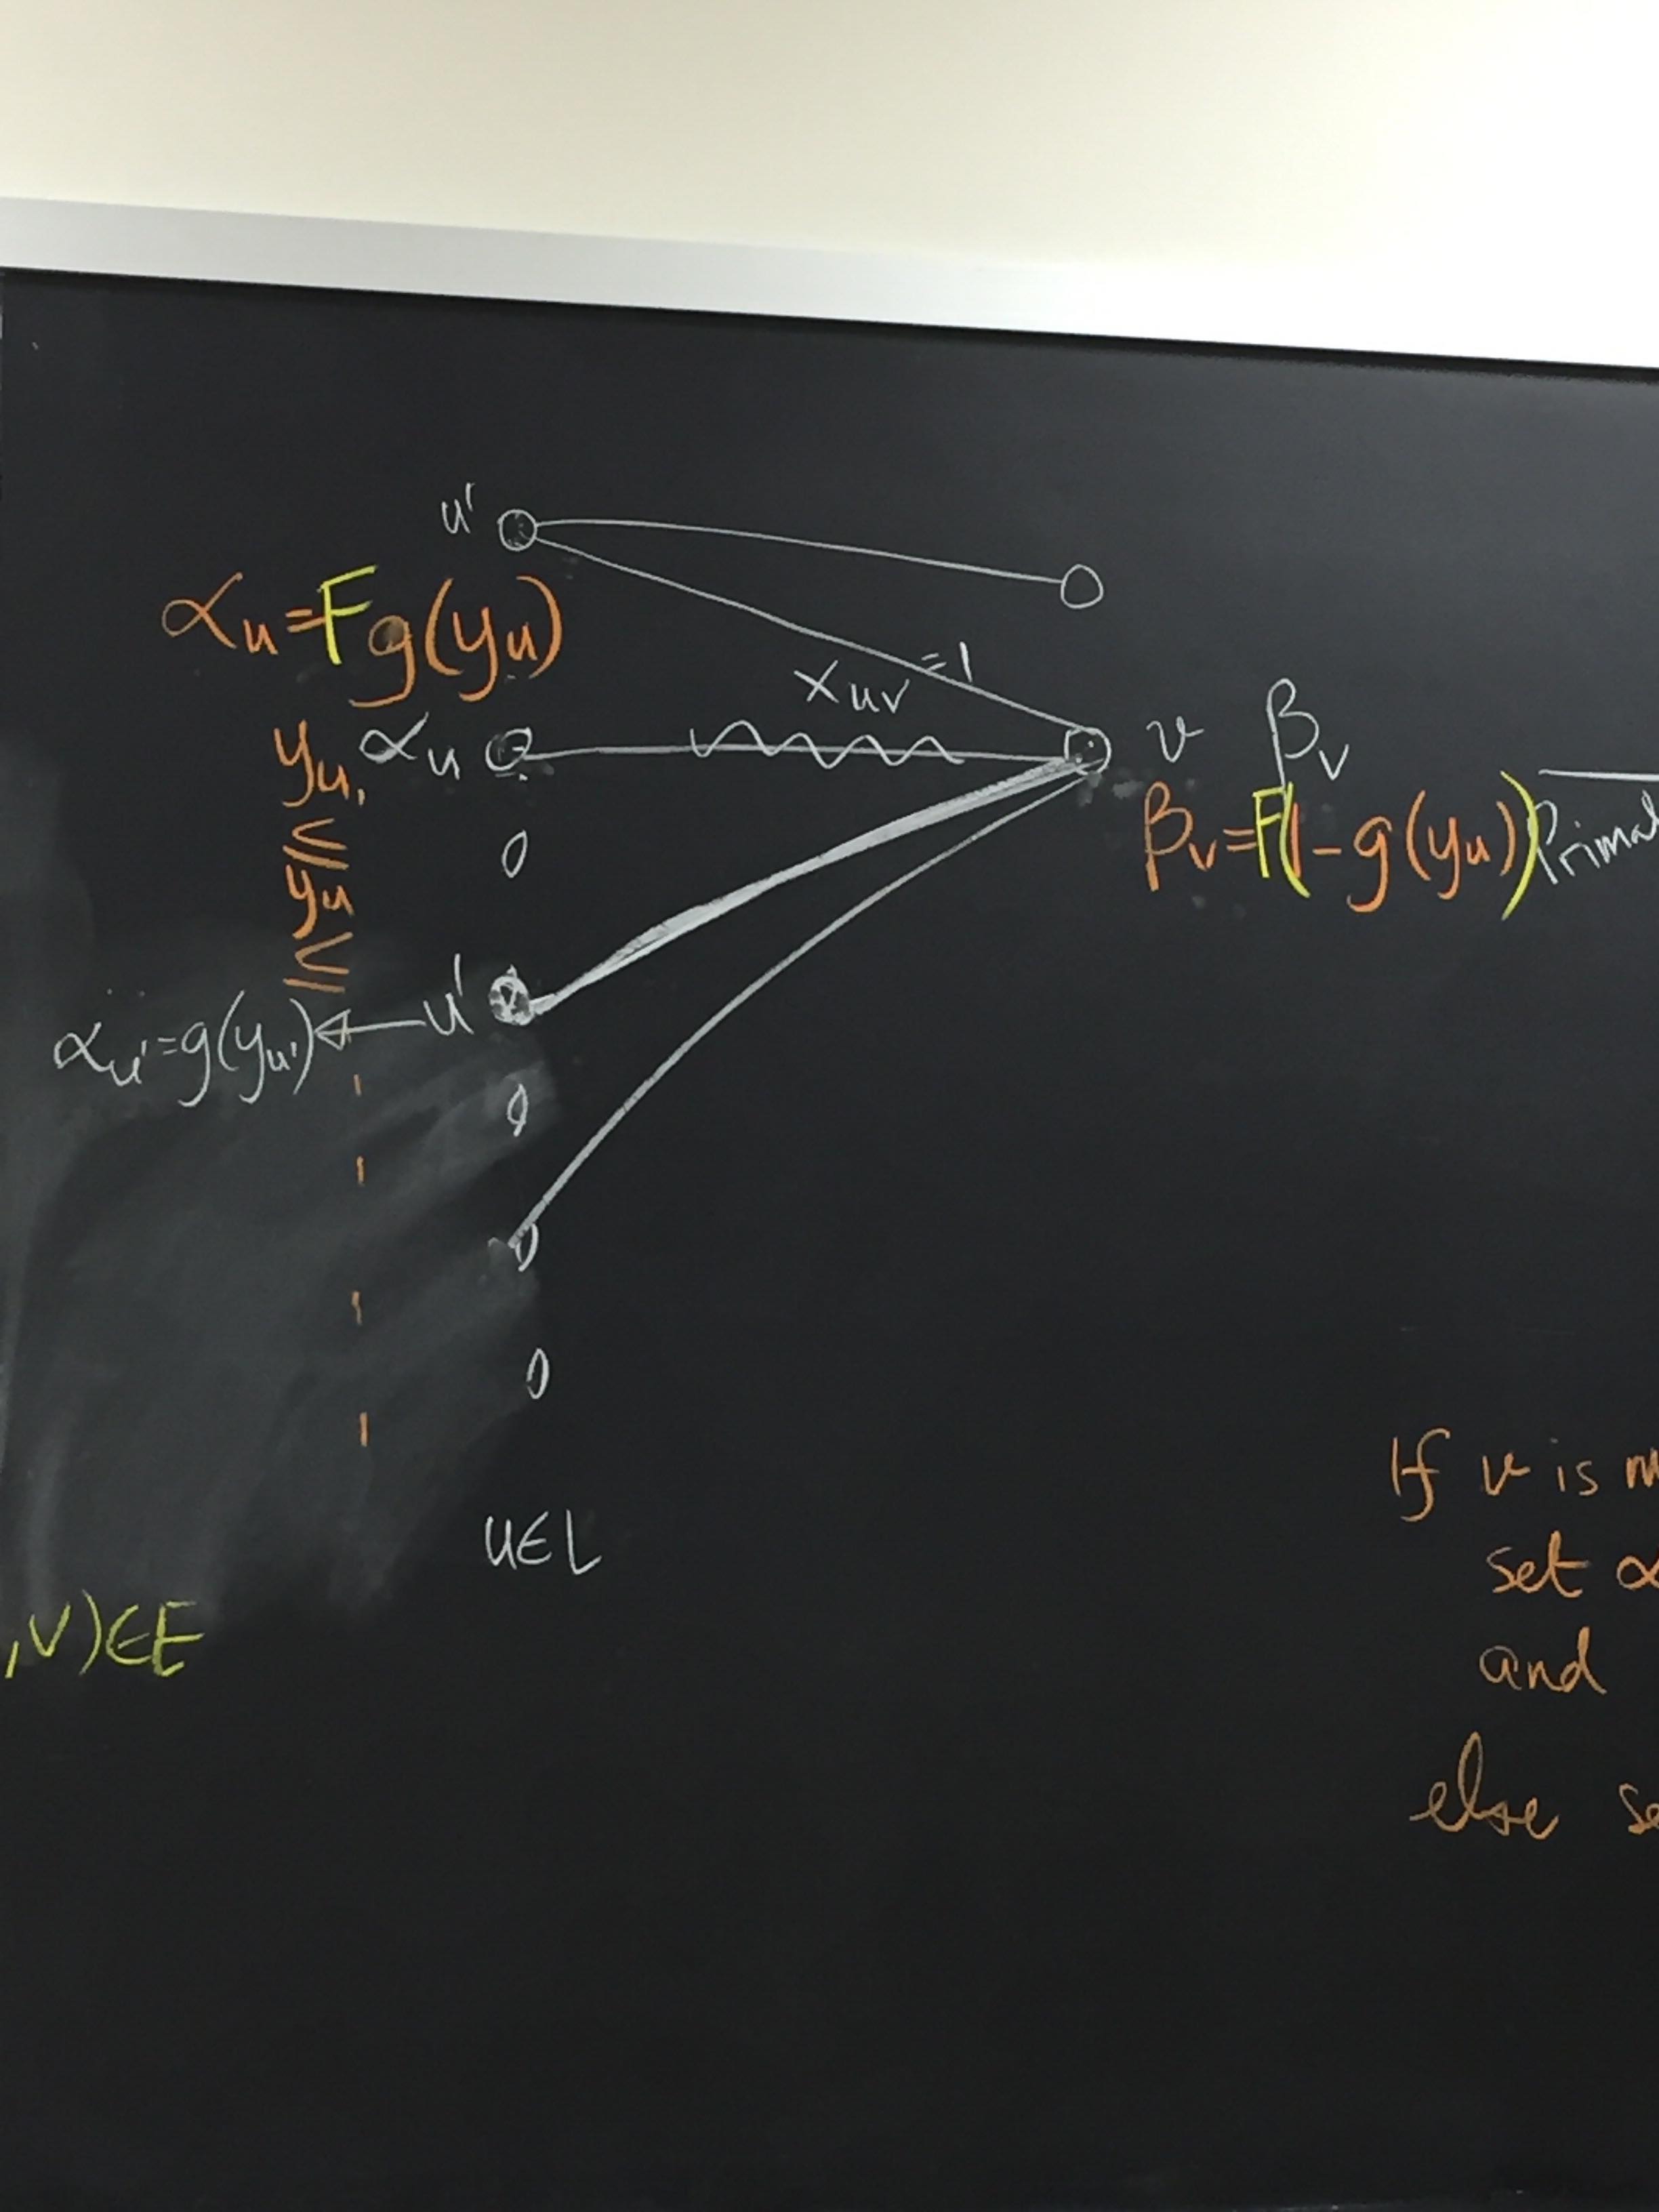 u'
α_u=Fg(y_u)
=1
x_uv
y_u,
α_u
v β_v
≤
y_u
≤
β_v=F(1-g(y_u))
Primal
α_u'=g(y_u')
u'
u∈L
If v is
set α
and
else
,v)∈E